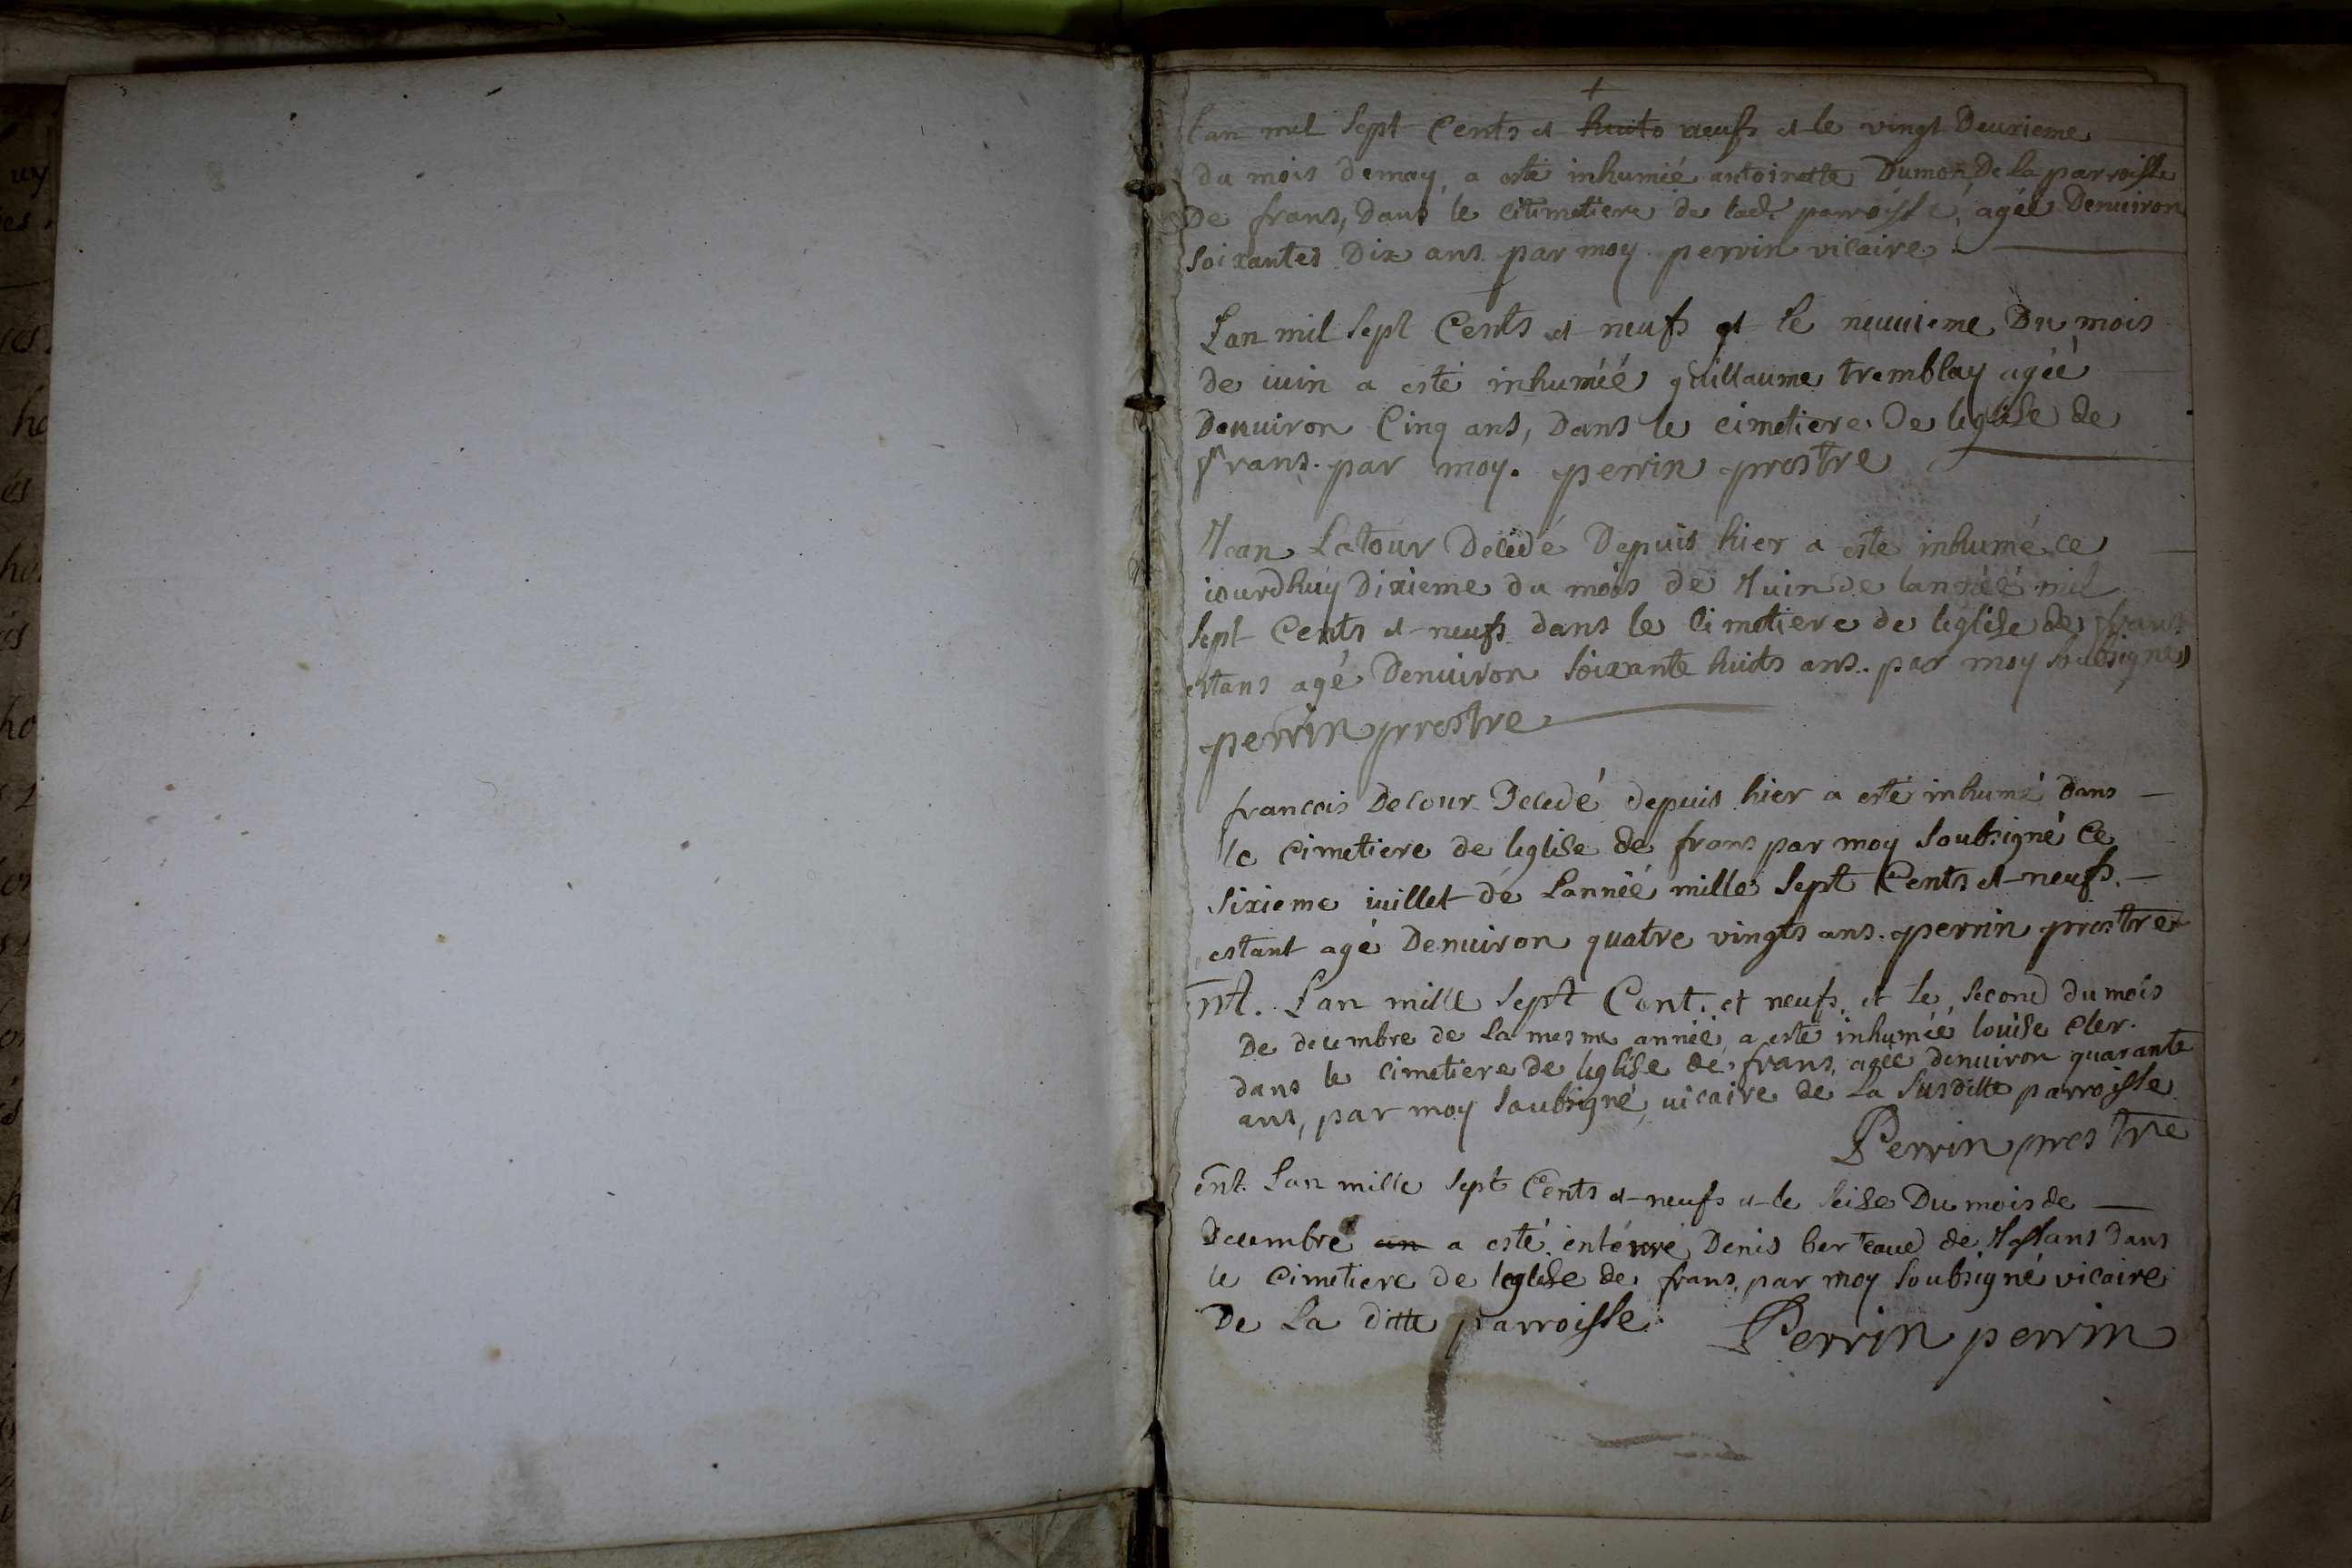 +
Lan mil sept Cents et huits neufs et le vingt Deuxieme
du mois demay, a esté inhumiée antoinette Dumon De la parroisse
De frans, Dans le cimetiere de lad. parroisse, agée Denuiron
soixantes Dix ans par moy perrin vicaire
Lan mil sept Cents et neufs et le neuuieme Du mois
de iuin a esté inhumée guillaume tremblay agéé
Denuiron Cinq ans, Dans le cimetiere De leglise de
frans. par moy. perrin prestre
Jean Latour Decedé Depuis hier a esté inhumé ce
iourdhuy Dixieme du mois de Juin de lanneé mil
sept Cents et neufs dans le Cimetiere de leglise de frans
estans agé Denuiron soixante huits ans. par moy soubsigne
perrin prrestre
francois Decour Decedé depuis hier a esté inhumé dans
le Cimetiere de leglise de frans par moy soubsigné Ce
sixieme iuillet de Lanneé mille sept Cents et neufs.
estant agé Denuiron quatre vingts ans. perrin prestre
nt. Lan mille sept Cent. et neufs. et le second du mois
De decembre de La mesme anneé, a esté inhumée louise cler.
dans le cimetiere de leglise de frans, agée denuiron quarante
ans, par moy soubsigné, vicaire de La susditte parroisse
Perrin prestre
ent. Lan mille sept Cents et neufs et le seise Du mois de
Decembre an a esté entérré Denis berteaud de Jassans dans
le Cimetiere de leglise de frans, par moy soubsigné vicaire
De La ditte parroisse. Perrin perrin